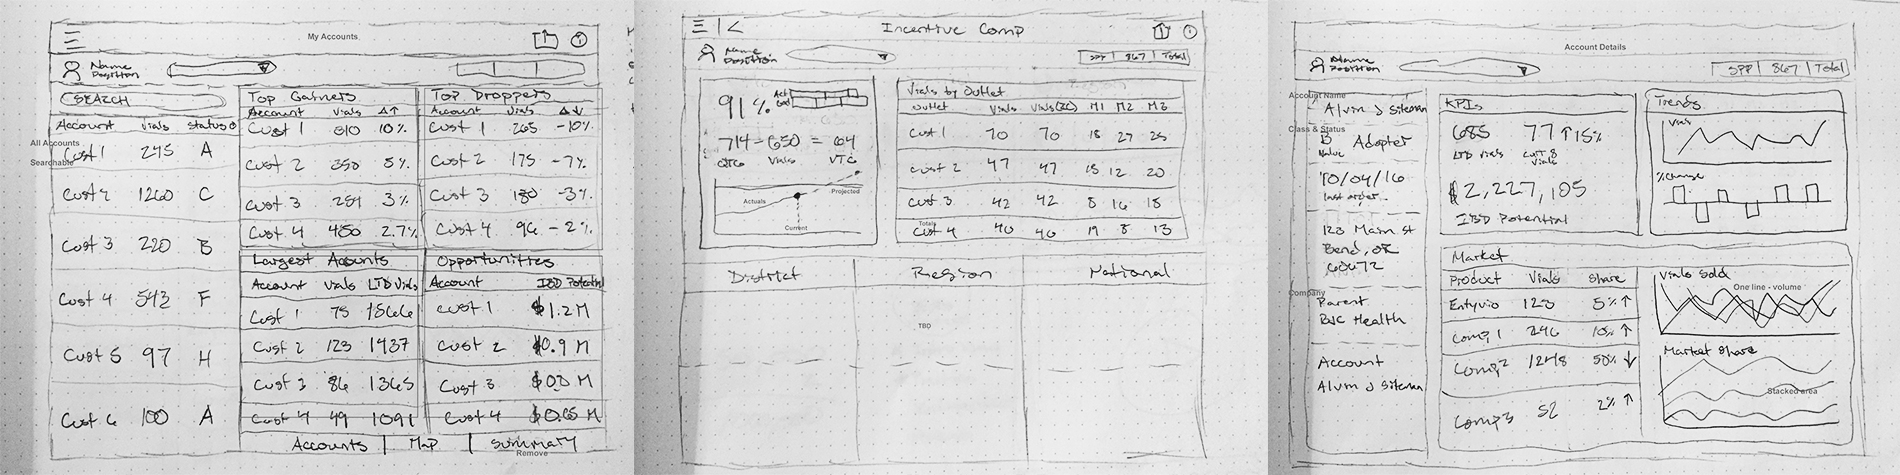 My Accounts
Name
Position
SEARCH
Account Vials Status
All Accounts
Searchable
Cust 1 245 A
Cust 2 1260 C
Cust 3 220 B
Cust 4 543 F
Cust 5 97 H
Cust 6 100 A
Top Gainers
Account Vials Δ↑
Cust 1 310 10%
Cust 2 350 5%
Cust 3 3%
Cust 4 450 2.7%
Top Droppers
Account Vials Δ↓
Cust 1 265 -10%
Cust 2 175 -7%
Cust 3 180 -3%
Cust 4 96 -2%
Largest Accounts
Account Vials LTD Vials
Cust 1 75 1566
Cust 2 123 1437
Cust 3 86 1365
Cust 4 49 1091
Opportunities
Account IBD Potential
Cust 1 $1.2 M
Cust 2 $0.9 M
Cust 3 M
Cust 4 $0.65 M
Accounts | Map | Summary
Remove
Incentive Comp
Name
Position
SPP | 867 | Total
91%
Act
Goal
714 - 650 = 64
QTG Vials VTG
Projected
Actuals
Current
Vials by Outlet
Region
Outlet Vials M1 M2 M3
Cust 1 70 70 18 27 25
Cust 2 47 47 15 12 20
Cust 3 42 42 8 16 18
Totals
Cust 4 40 40 19 8 13
District Region National
TBD
Account Details
Name
Position
SPP | 867 | Total
Account Name
Alvin J Siteman
Class & Status
B Adopter
10/04/16
last order
123 Main St
Bend, OR
60672
Company
Parent
BJC Health
Account
Alvin J Siteman
KPIs
685 77 ↑15%
LTD Vials Vials
$2,227,105
IBD Potential
Trends
Vials
% Change
Market
Product Vials Share
Entyvio 123 5% ↑
Comp 1 246 10% ↑
Comp 2 1248 50% ↓
Comp 3 52 2% ↑
Vials Sold
One line - volume
Market Share
Stacked area